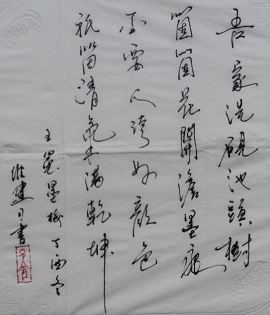 吾家洗硯池頭樹
箇箇花開澹墨痕
不要人誇好顏色
祇留清氣滿乾坤
王冕墨梅丁酉冬
建日書